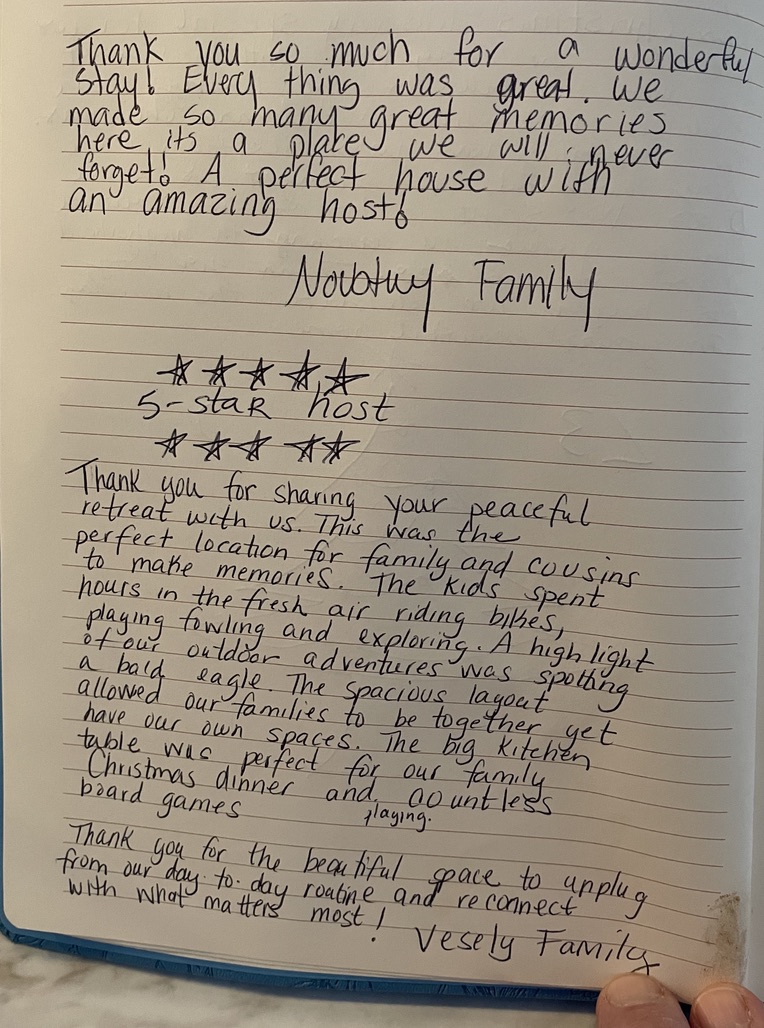 Thank you so much for a wonderful
stay! Every thing was great. We
made so many great memories
here, its a place we will never
forget! A perfect house with
an amazing host!
Family
★★★★★
5-staR host
★★★★★
Thank you for sharing your peaceful
retreat with us. This was the
perfect location for family and cousins
to make memories. The kids spent
hours in the fresh air riding bikes,
playing fowling and exploring. A high light
of our outdoor adventures was spotting
a bald eagle. The spacious layout
allowed our families to be together yet
have our own spaces. The big Kitchen
table was perfect for our family
Christmas dinner and countless
board games playing.
Thank you for the beautiful space to unplug
from our day-to-day routine and reconnect
with what matters most!
Vesely Family